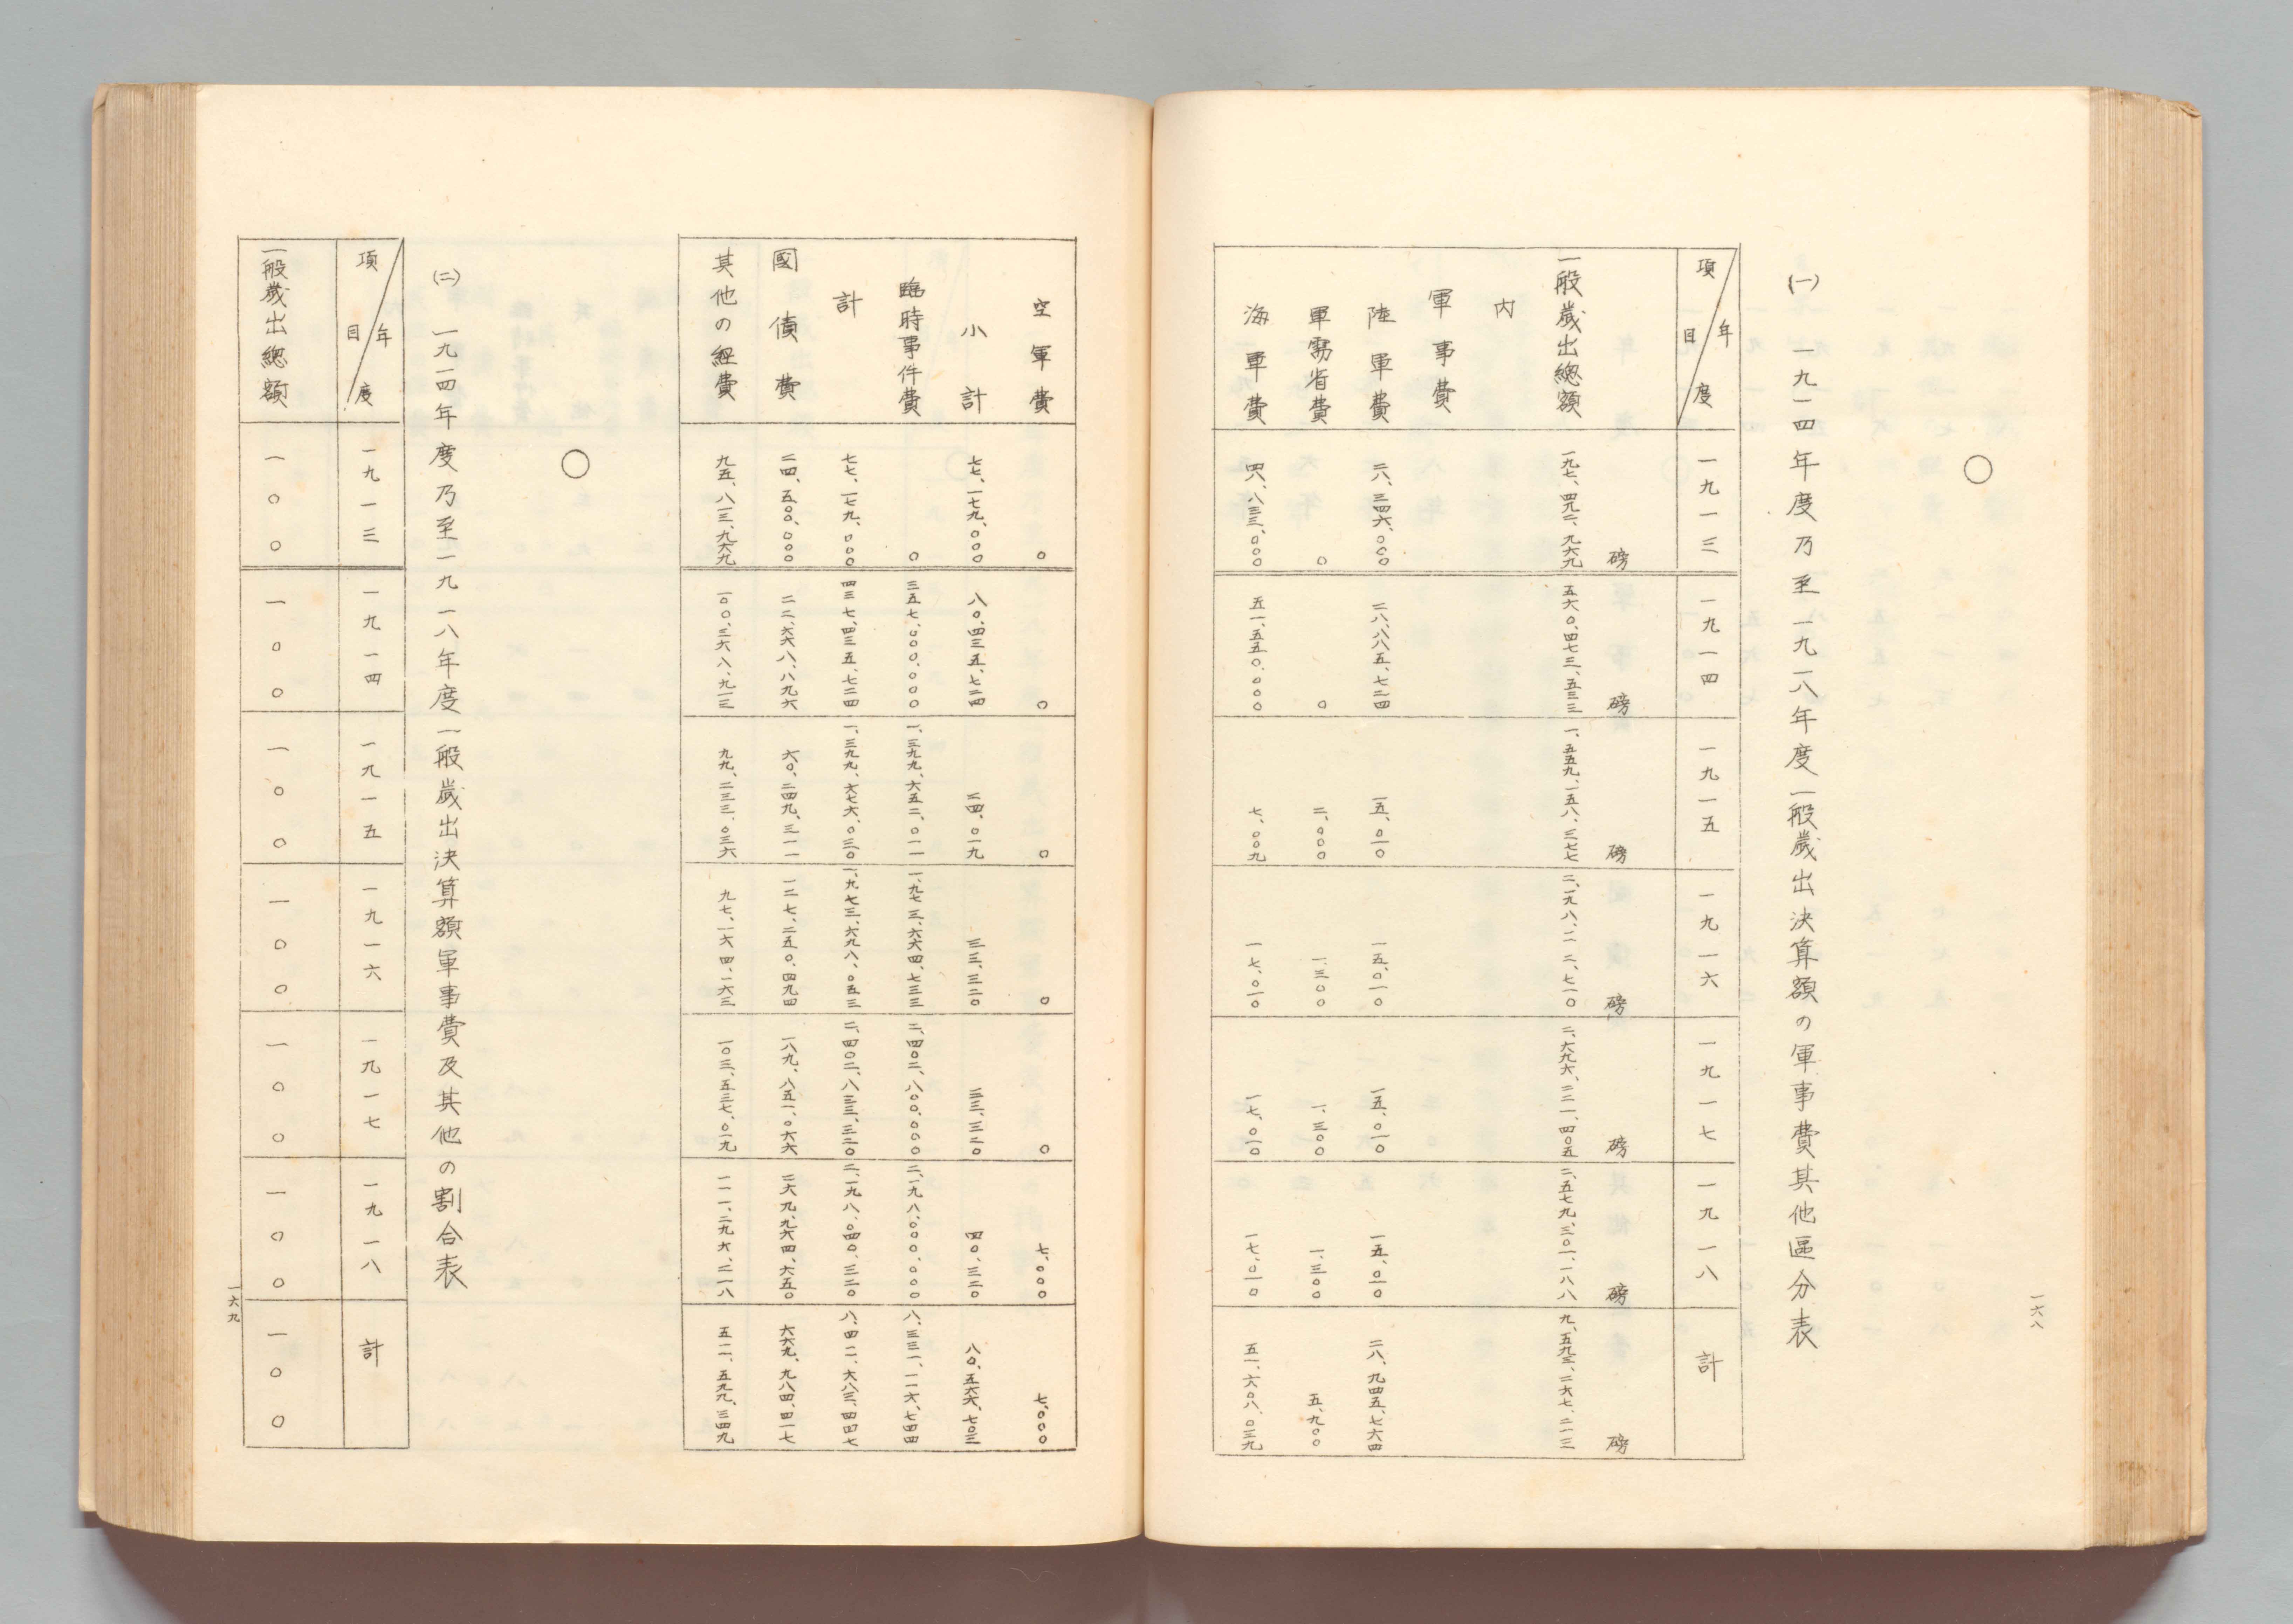 一六八
○
(一) 一九一四年度乃至一九一八年度一般歲出決算額の軍事費其他區分表
項目/年度 一九一三 一九一四 一九一五 一九一六 一九一七 一九一八 計
磅 磅 磅 磅 磅 磅 磅
一般歲出總額 一九七、四九二、九六九 五六〇、四七三、五三三 一、五五九、一五八、三七七 二、一九八、一一二、七一〇 二、六九六、二二一、四〇五 二、五七九、三〇一、一八八 九、五九三、二六七、二一三
內
軍事費
陸軍費 二八、三四六、〇〇〇 二八、八八五、七二四 一五、〇一〇 一五、〇一〇 一五、〇一〇 一五、〇一〇 二八、九四五、七六四
軍需省費 〇 〇 二、〇〇〇 一、三〇〇 一、三〇〇 一、三〇〇 五、九〇〇
海軍費 四八、八三三、〇〇〇 五一、五五〇、〇〇〇 七、〇〇九 一七、〇一〇 一七、〇一〇 一七、〇一〇 五一、六〇八、〇三九
空軍費 〇 〇 〇 〇 〇 七、〇〇〇 七、〇〇〇
小計 七七、一七九、〇〇〇 八〇、四三五、七二四 二四、〇一九 三三、三二〇 三三、三二〇 四〇、三二〇 八〇、五六六、七〇三
臨時事件費 〇 三五七、〇〇〇、〇〇〇 一、三九九、六五二、〇一一 一、九七三、六六四、七三三 二、四〇二、八〇〇、〇〇〇 二、一九八、〇〇〇、〇〇〇 八、三三一、一一六、七四四
計 七七、一七九、〇〇〇 四三七、四三五、七二四 一、三九九、六七六、〇三〇 一、九七三、六九八、〇五三 二、四〇二、八三三、三二〇 二、一九八、〇四〇、三二〇 八、四一一、六八三、四四七
國債費 二四、五〇〇、〇〇〇 二二、六六八、八九六 六〇、二四九、三一一 一二七、二五〇、四九四 一八九、八五一、〇六六 二六九、九六四、六五〇 六六九、九八四、四一七
其他の經費 九五、八一三、九六九 一〇〇、三六八、九一三 九九、二三三、〇三六 九七、一六四、一六三 一〇三、五三七、〇一九 一一一、二九六、二一八 五一一、五九九、三四九
○
(二) 一九一四年度乃至一九一八年度一般歲出決算額軍事費及其他の割合表
項目/年度 一九一三 一九一四 一九一五 一九一六 一九一七 一九一八 計
一般歲出總額 一〇〇 一〇〇 一〇〇 一〇〇 一〇〇 一〇〇 一〇〇
一六九